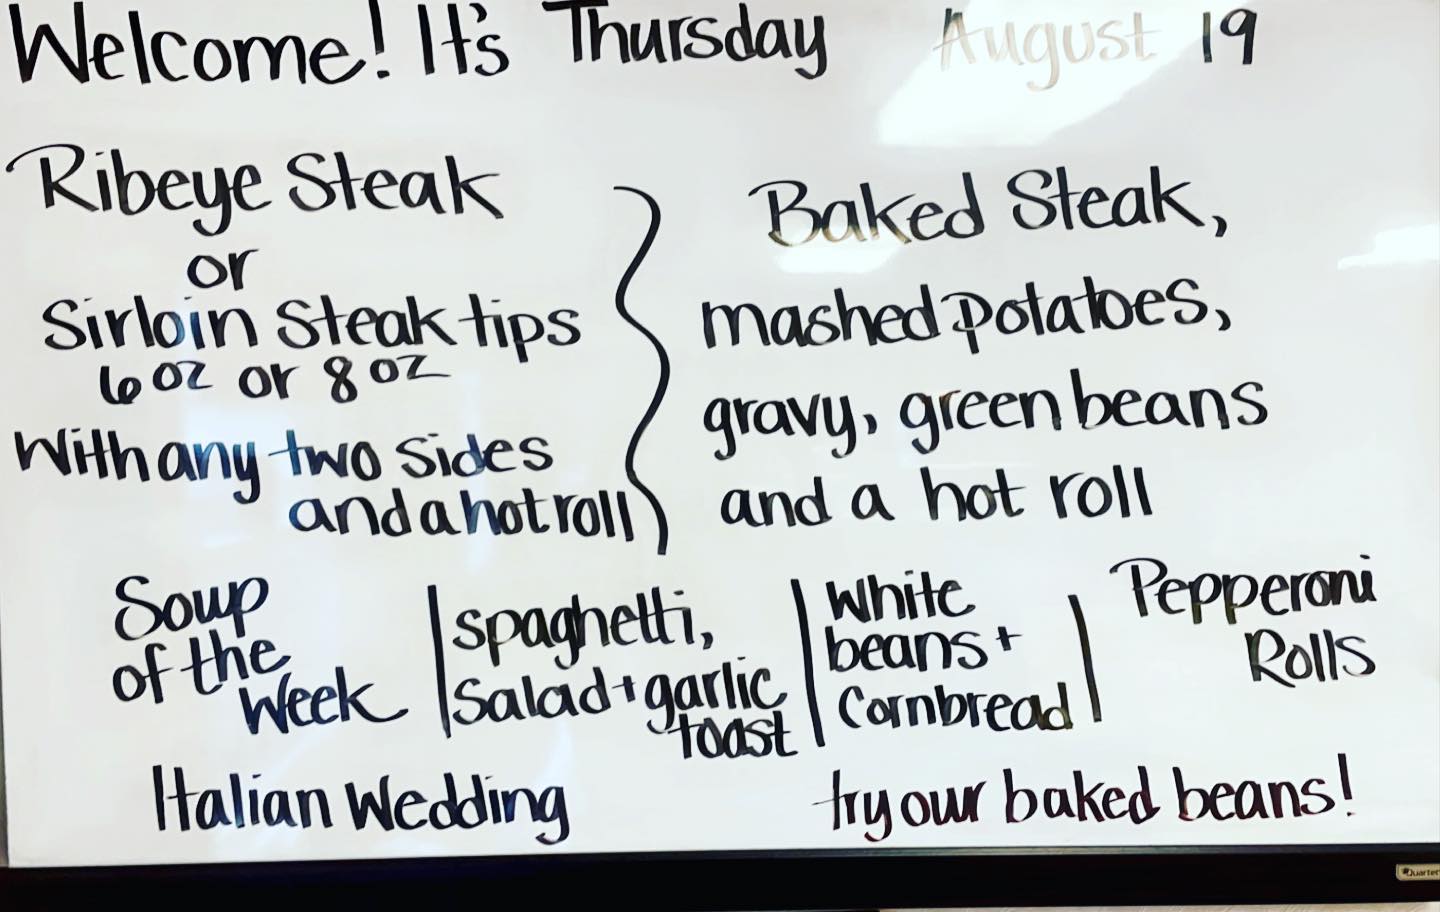 Welcome! It's Thursday August 19
Ribeye Steak
or
Sirloin Steak tips
6 oz or 8 oz
With any two sides
and a hot roll
Baked Steak,
mashed potatoes,
gravy, green beans
and a hot roll
Soup
of the
Week
Italian Wedding
spaghetti,
Salad + garlic
toast
White
beans +
Cornbread
Pepperoni
Rolls
try our baked beans!
Quartet